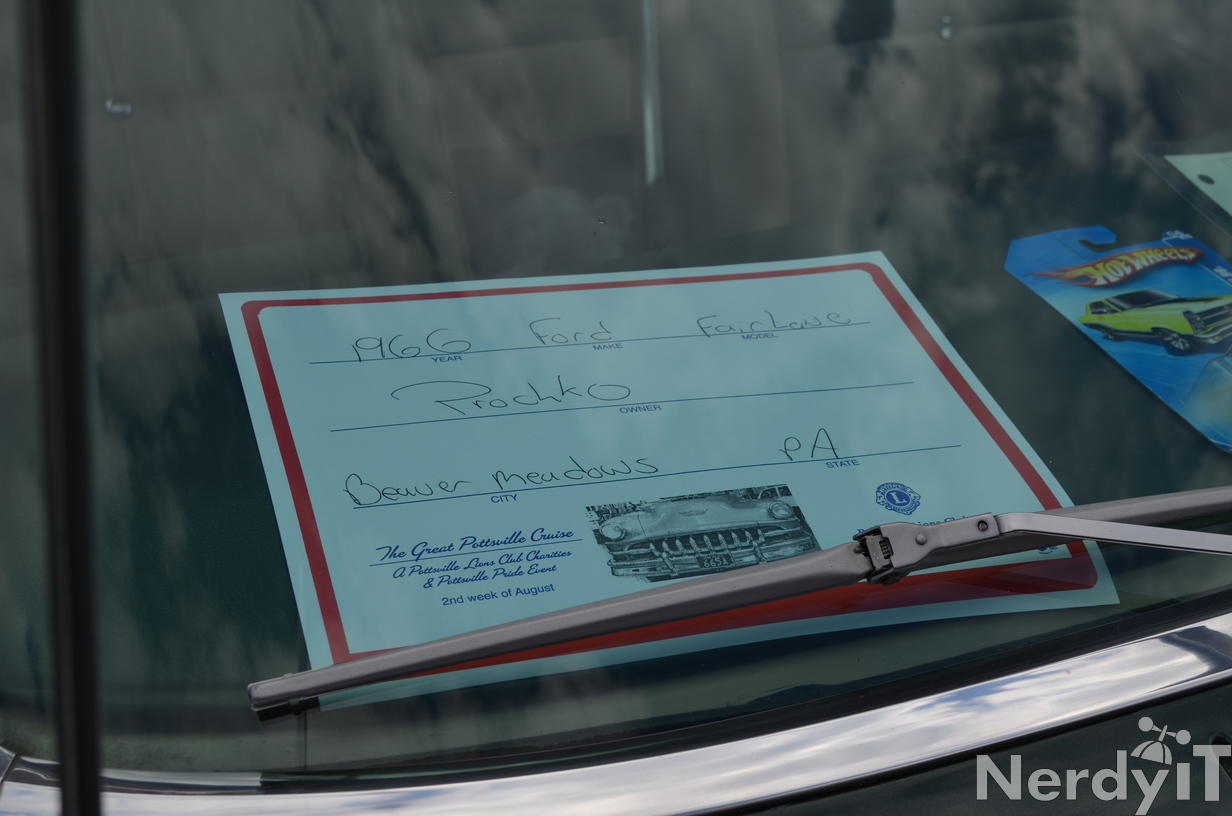 1966 Ford Fairlane
YEAR MAKE MODEL
Prochko
OWNER
Beaver Meadows PA
CITY STATE
The Great Pottsville Cruise
A Pottsville Lions Club Charities
& Pottsville Pride Event
2nd week of August
6651
L
HOT WHEELS
NerdyiT